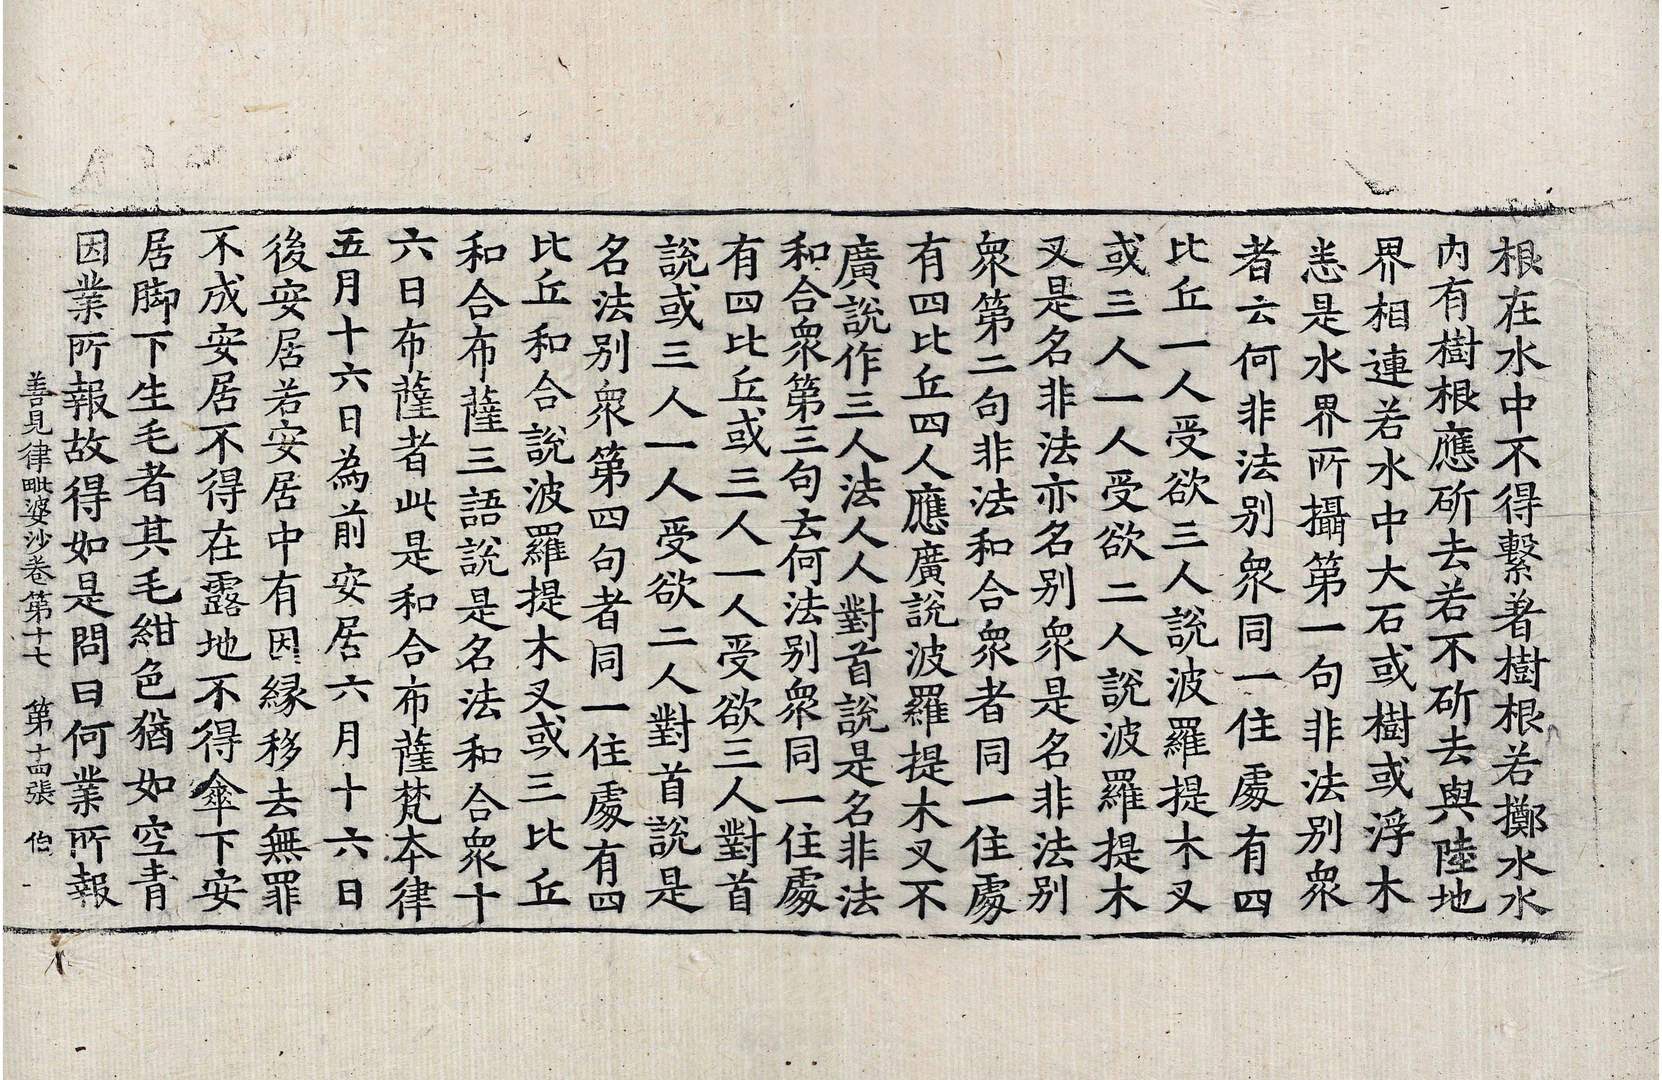 根在水中不得繫著樹根若擲水水
内有樹根應斫去若不斫去與陸地
界相連若水中大石或樹或浮木
恙是水界所攝第一句非法别衆
者云何非法别衆同一住處有四
比丘一人受欲三人說波羅提木叉
或三人一人受欲二人說波羅提木
叉是名非法亦名别衆是名非法别
衆第二句非法和合衆者同一住處
有四比丘四人應廣說波羅提木叉不
廣說作三人法人人對首說是名非法
和合衆第三句云何法别衆同一住處
有四比丘或三人一人受欲三人對首
說或三人一人受欲二人對首說是
名法别衆第四句者同一住處有四
比丘和合說波羅提木叉或三比丘
和合布薩三語說是名法和合衆十
六日布薩者此是和合布薩梵本律
五月十六日為前安居六月十六日
後安居若安居中有因縁移去無罪
不成安居不得在露地不得傘下安
居脚下生毛者其毛紺色猶如空青
因業所報故得如是問曰何業所報
善見律毗婆沙卷第十七 第十四張 伯